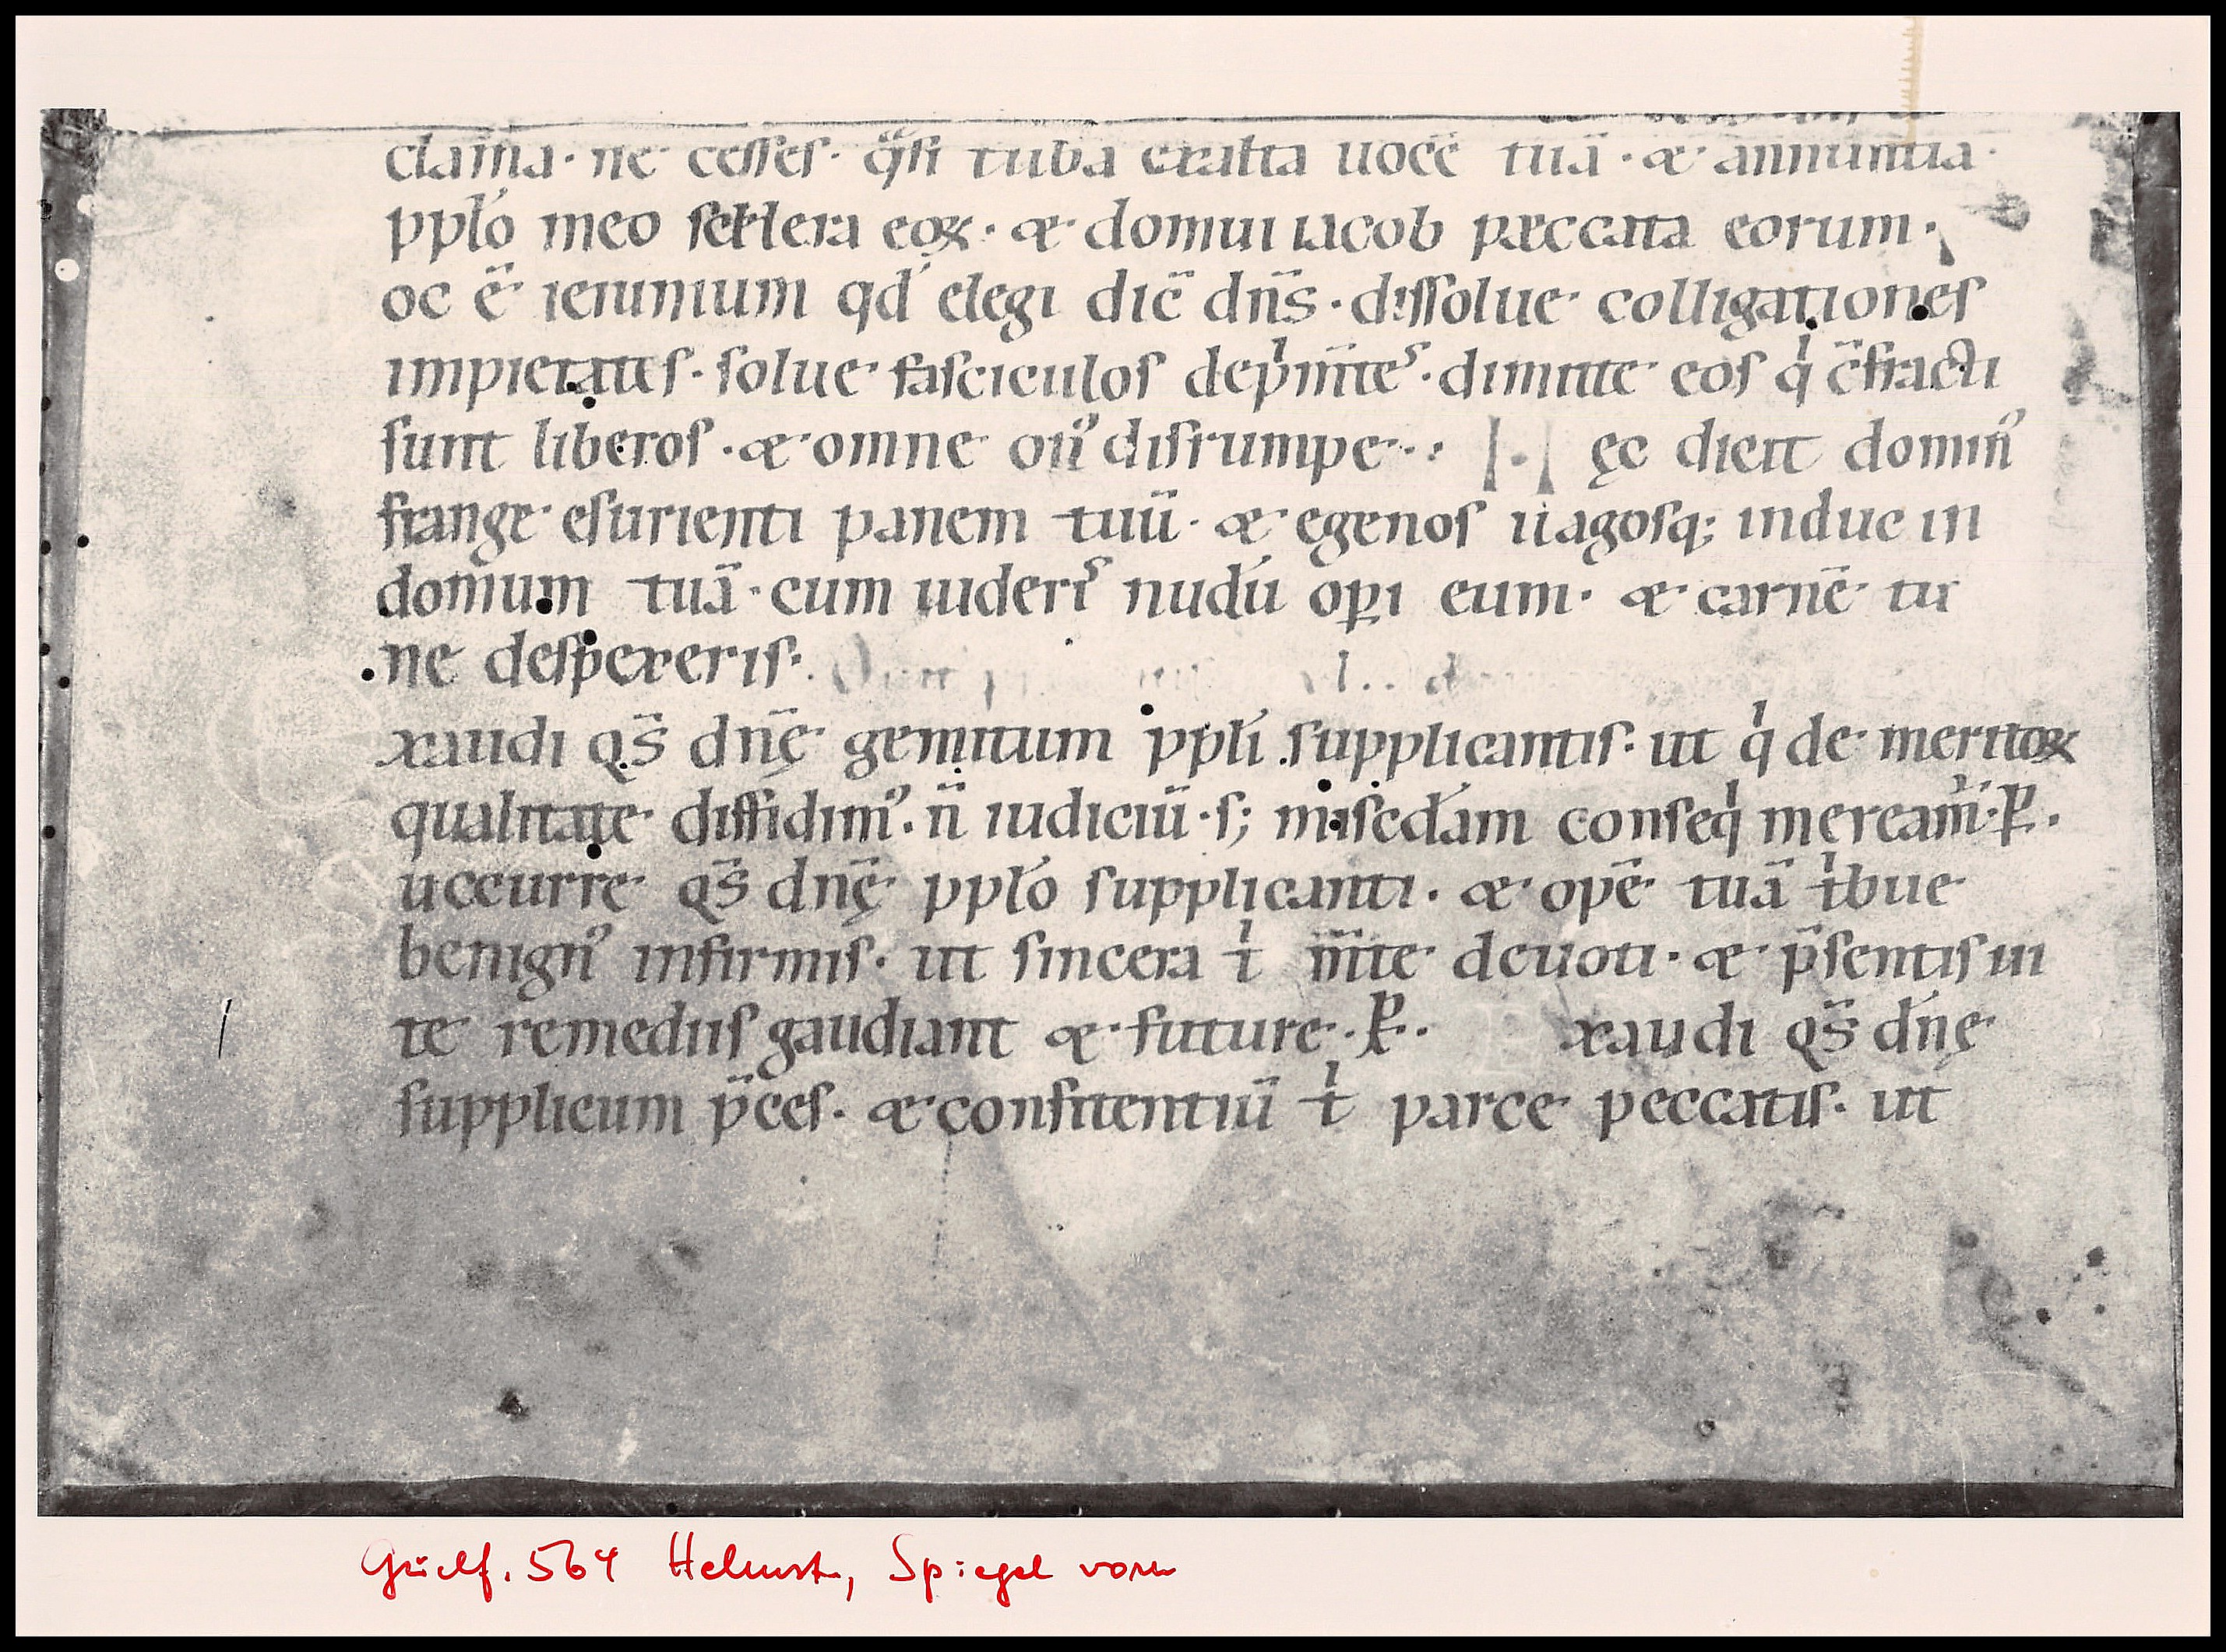 clama· ne cesses· q̈si tuba exalta uocē tuā· & annuntia·
ppl̓o meo scelera eoꝝ· & domui iacob peccata eorum·
oc ē ieiunium qd̓ elegi dic̄ dn̄s· dissolue colligationes
impietatis· solue fasciculos dep̍im̄tes· dimitte eos q̍ c̄fracti
sunt liberos· & omne on̓ disrumpe·· H ęc dicit domin̓
frange esurienti panem tuū· & egenos uagosq; induc in
domum tuā· cum uideris nudū oꝑi eum· & carnē tu
ne despexeris·
Exaudi qs̄ dn̄ę gemitum ppl̓i supplicantis· ut q̍ de meritoꝝ
qualitate diffidim̓· n̄ iudiciū· s; mis̄cd̓am conseq̍ mereamur̄· ꝑ·
Succurre qs̄ dn̄ę ppl̓o supplicanti· & opē tuā t̍bue
benign̓ infirmis· ut sincera t̍ m̄te deuoti· & p̄sentis ui
te remediis gaudiant & future· ꝑ· E xaudi qs̄ dn̄ę
supplicum p̄ces· & confitentiū t̍ parce peccatis· ut
Guelf. 564 Helmst, Spiegel vorn